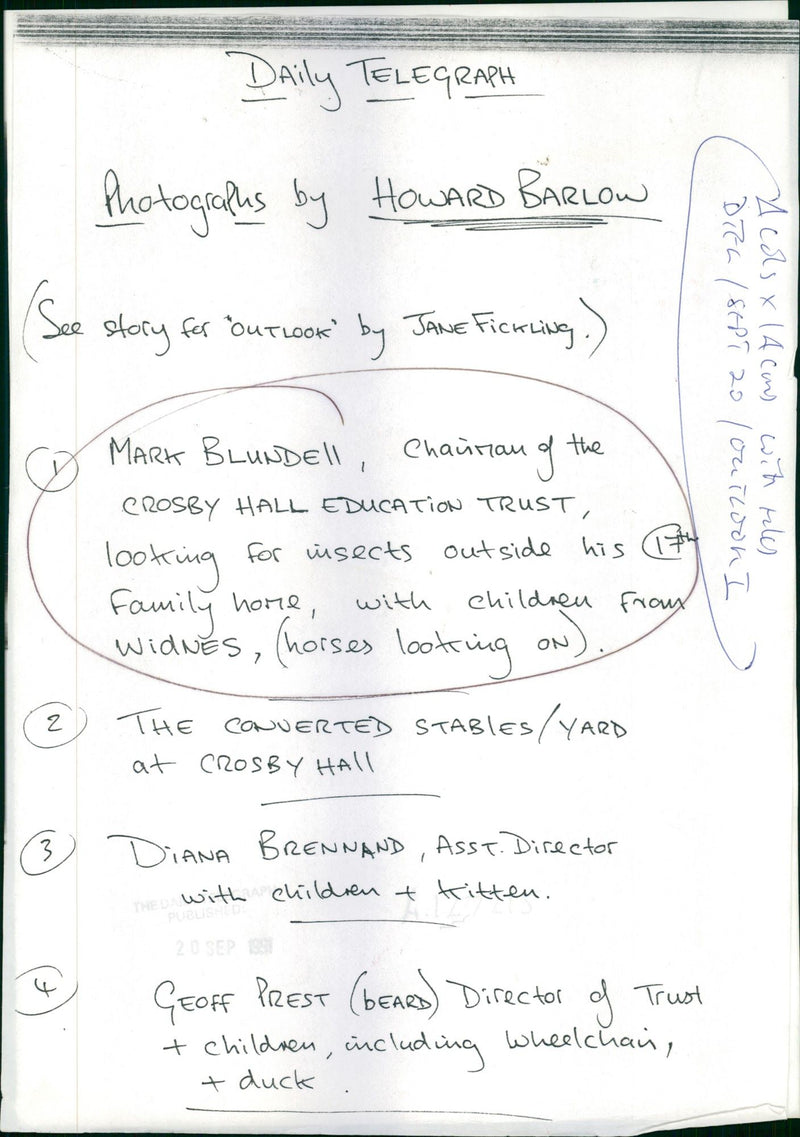 DAily TELEGRAPH
Photographs by HOWARD BARLOW
(See story for "OUTLOOK" by JANE FICKLING.)
1 MARK BLUNDEll, Chairman of the
CROSBY HALL EDUCATION TRUST,
looking for insects outside his 17th
Family home, with children from
WIDNES, (horses looking on).
2 THE CONVERTED STABlES/YARD
at CROSBY HAll
3 DIANA BRENNAND, ASST. Director
with children + kitten.
THE DAILY TELEGRAPH
PUBLISHED:
20 SEP 1991
4 GEOFF PREST (bEARD) Director of Trust
+ children, including wheelchair,
+ duck.
4 cols x 14 cms with rules
SEPT 20 / OUTLOOK I